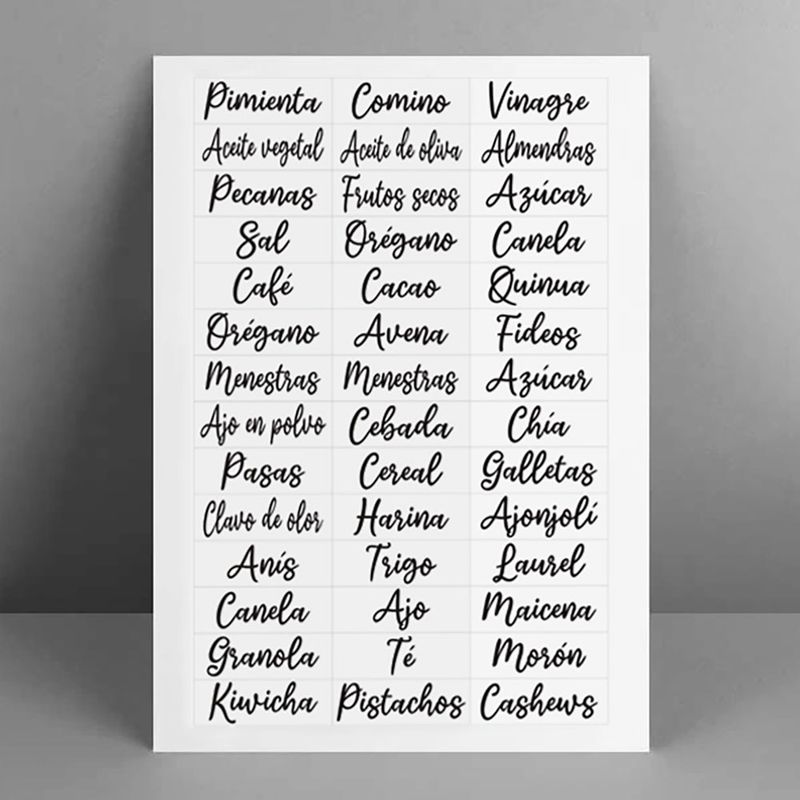 Pimienta Comino Vinagre
Aceite vegetal Aceite de oliva Almendras
Pecanas Frutos secos Azúcar
Sal Orégano Canela
Café Cacao Quinua
Orégano Avena Fideos
Menestras Menestras Azúcar
Ajo en polvo Cebada Chía
Pasas Cereal Galletas
Clavo de olor Harina Ajonjolí
Anís Trigo Laurel
Canela Ajo Maicena
Granola Té Morón
Kiwicha Pistachos Cashews